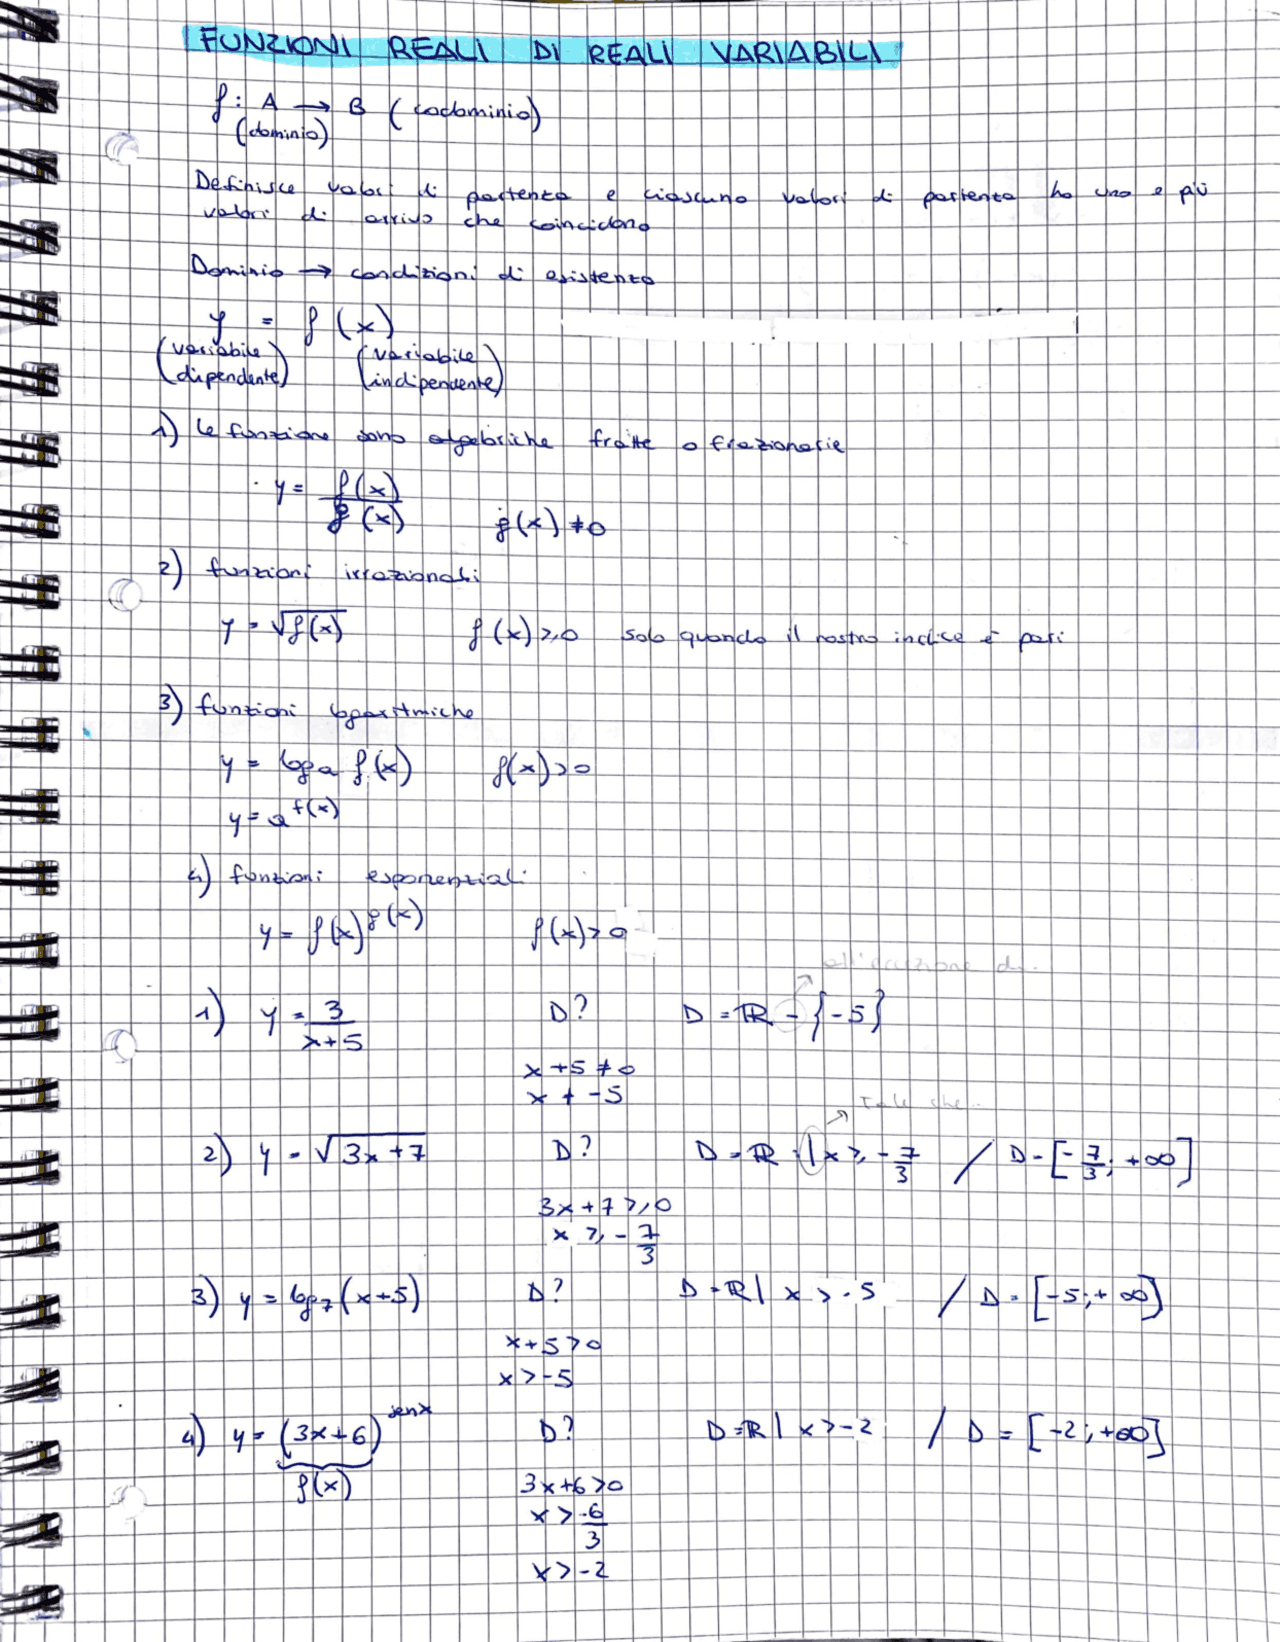 FUNZIONI REALI DI REALI VARIABILI
f: A → B (codominio)
(dominio)
Definisce valori di partenza e ciascuno valori di partenza ha uno e più
valori di arrivo che coincidono
Dominio → condizioni di esistenza
y = f(x)
(variabile dipendente) (variabile indipendente)
1) Le funzione sono algebriche fratte o frazionarie
· y = f(x)/g(x) g(x) ≠ 0
2) funzioni irrazionali
y = √f(x) f(x) ≥ 0 solo quando il nostro indice è pari
3) funzioni logaritmiche
y = loga f(x) f(x) > 0
y = a^f(x)
4) funzioni esponenziali
y = f(x)^g(x) f(x) > 0
all'eccezione di..
1) y = 3/(x+5) D? D = ℝ - {-5}
x + 5 ≠ 0
x ≠ -5
Tale che..
2) y = √3x+7 D? D = ℝ | x ≥ -7/3 / D = [-7/3; +∞]
3x + 7 ≥ 0
x ≥ -7/3
3) y = log7(x+5) D? D = ℝ | x > -5 / D = [-5; +∞)
x + 5 > 0
x > -5
4) y = (3x+6)^senx D? D = ℝ | x > -2 / D = [-2; +∞]
f(x) 3x+6 > 0
x > -6/3
x > -2